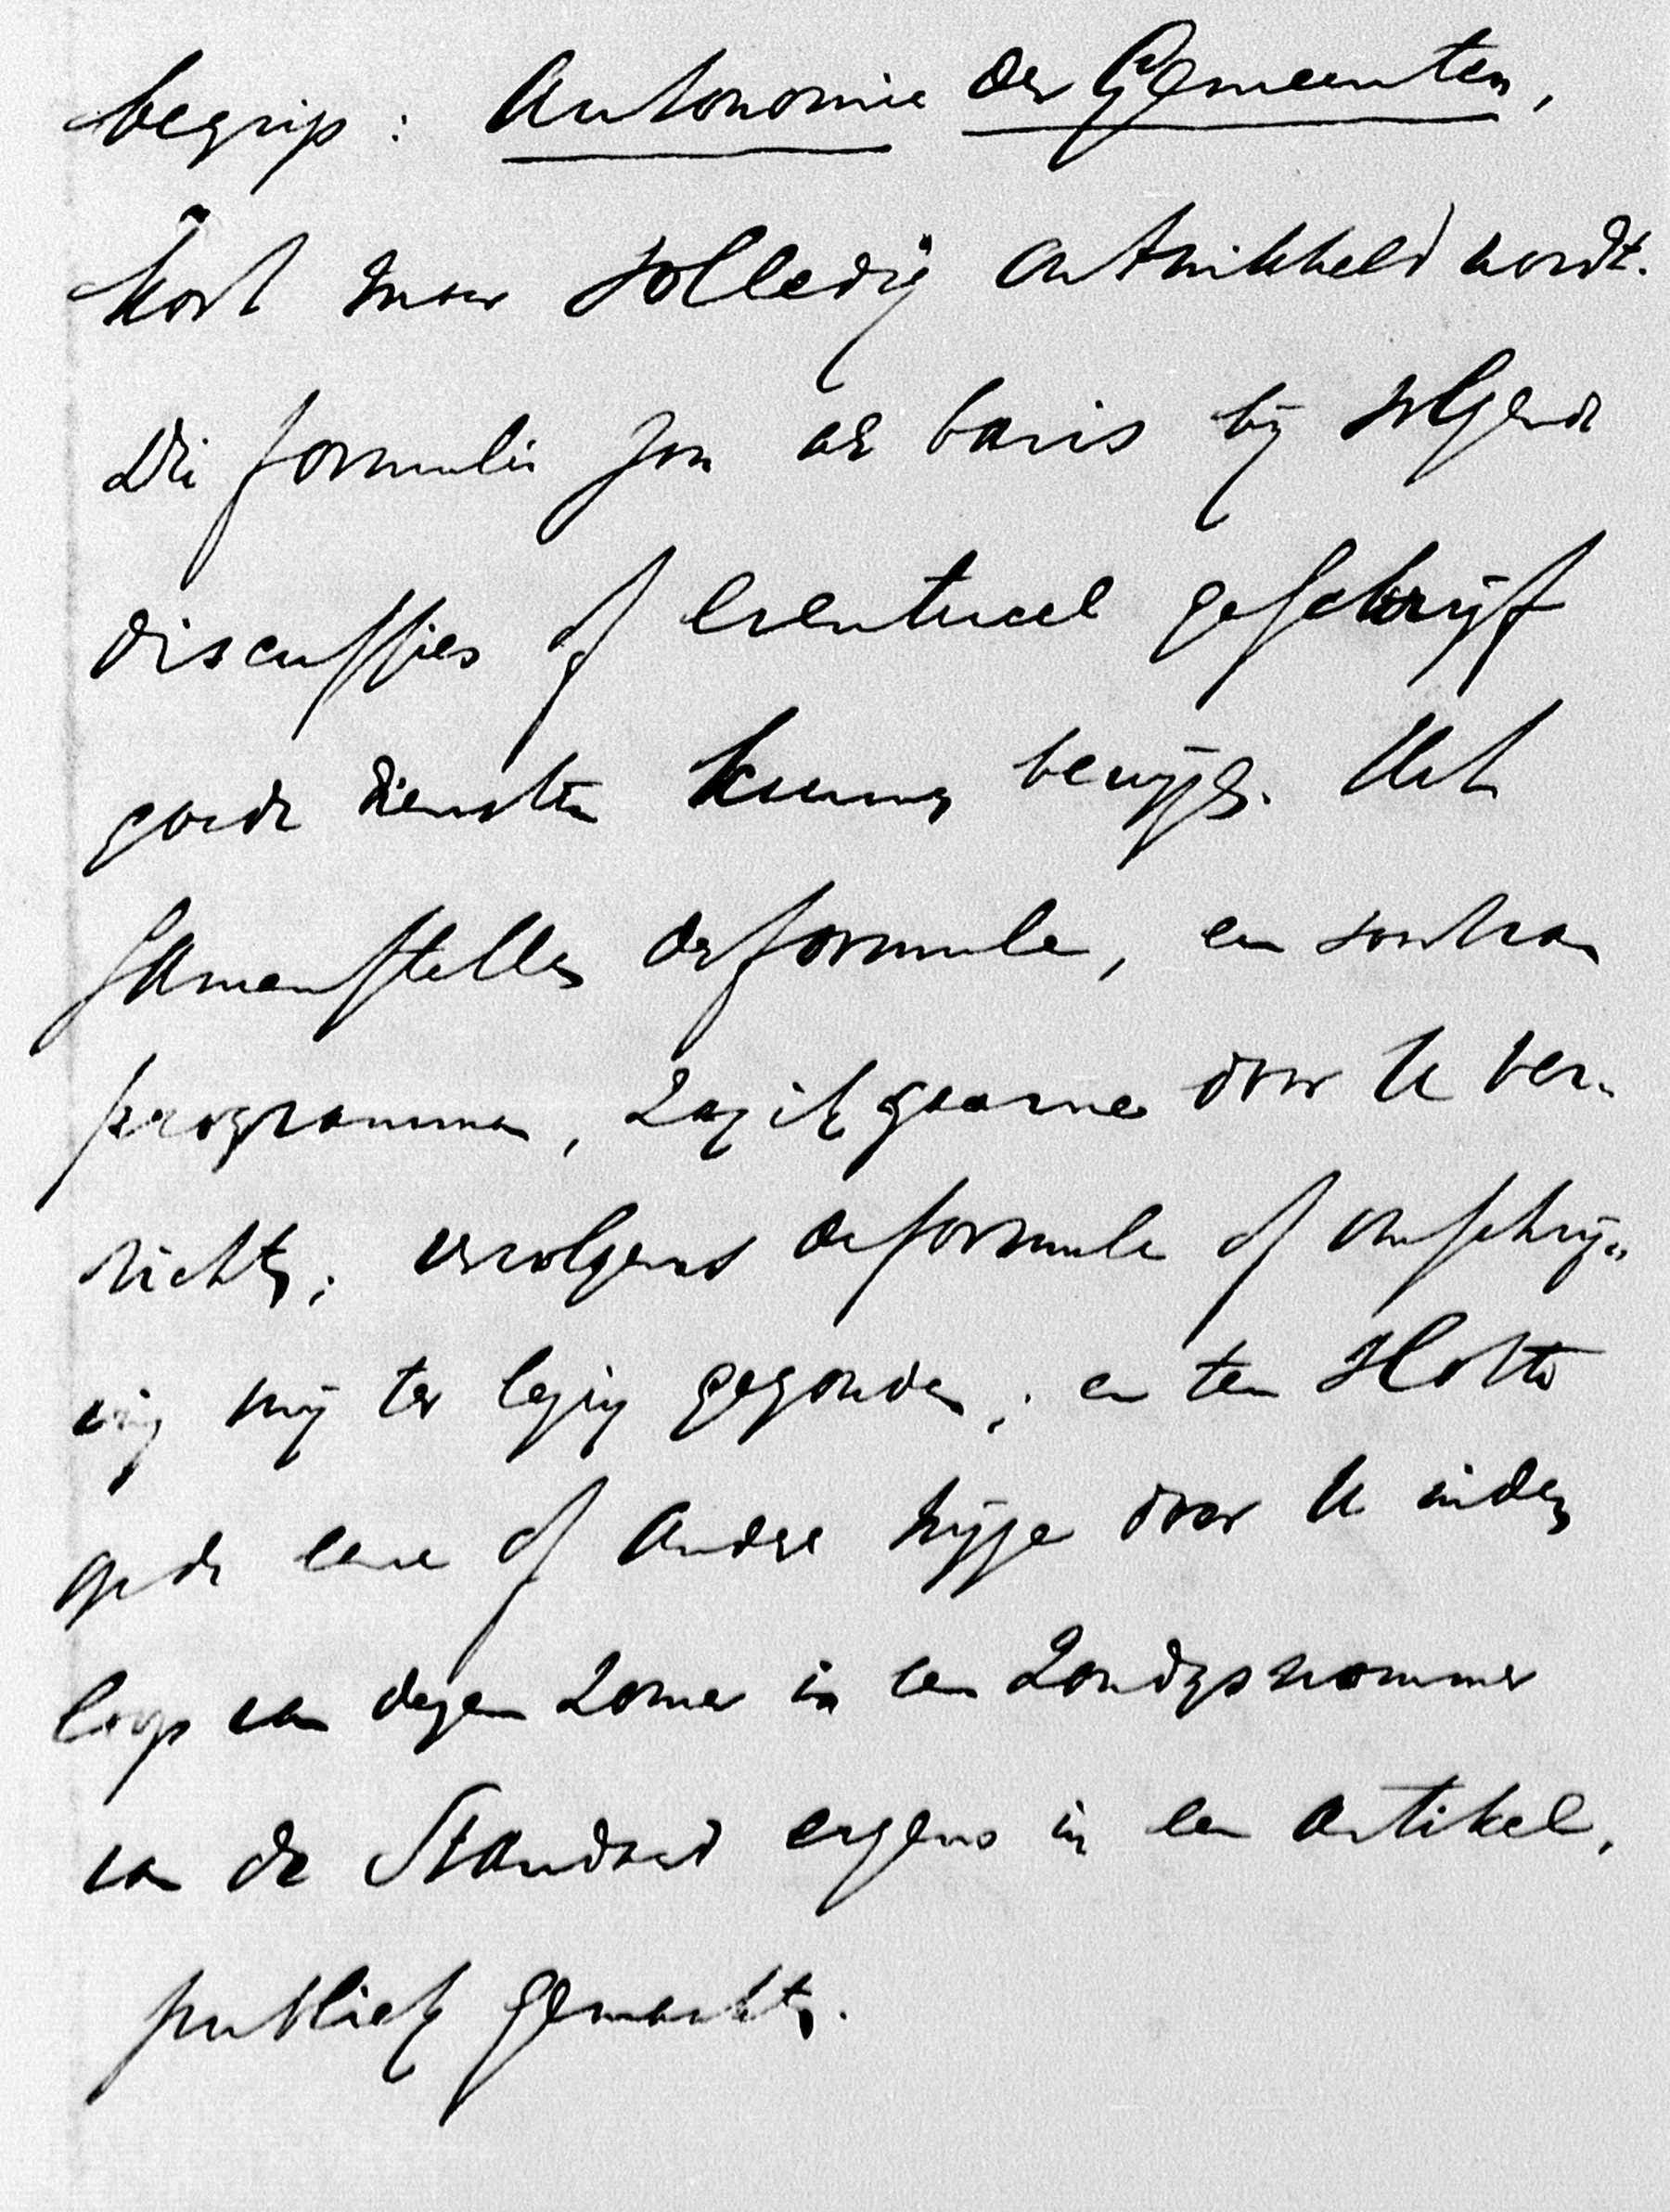 begrip: Autonomie der Gemeenten,
kort maar volledig ontwikkeld wordt.
Die formule zou als basis bij volgende
discussies of eventueel geschrijf
goede diensten kunnen bewijzen. Het
samenstellen der formule, een soort van
programma, zag ik gaarne door U ver-
richten; vervolgens de formule of omschrij-
ving mij ter lezing gezonden; en ten slotte
op de eene of andere wijze door U in den
loop van dezen zomer in een Zondagsnommer
van de Standaard ergens in een artikel,
publiek gemaakt.